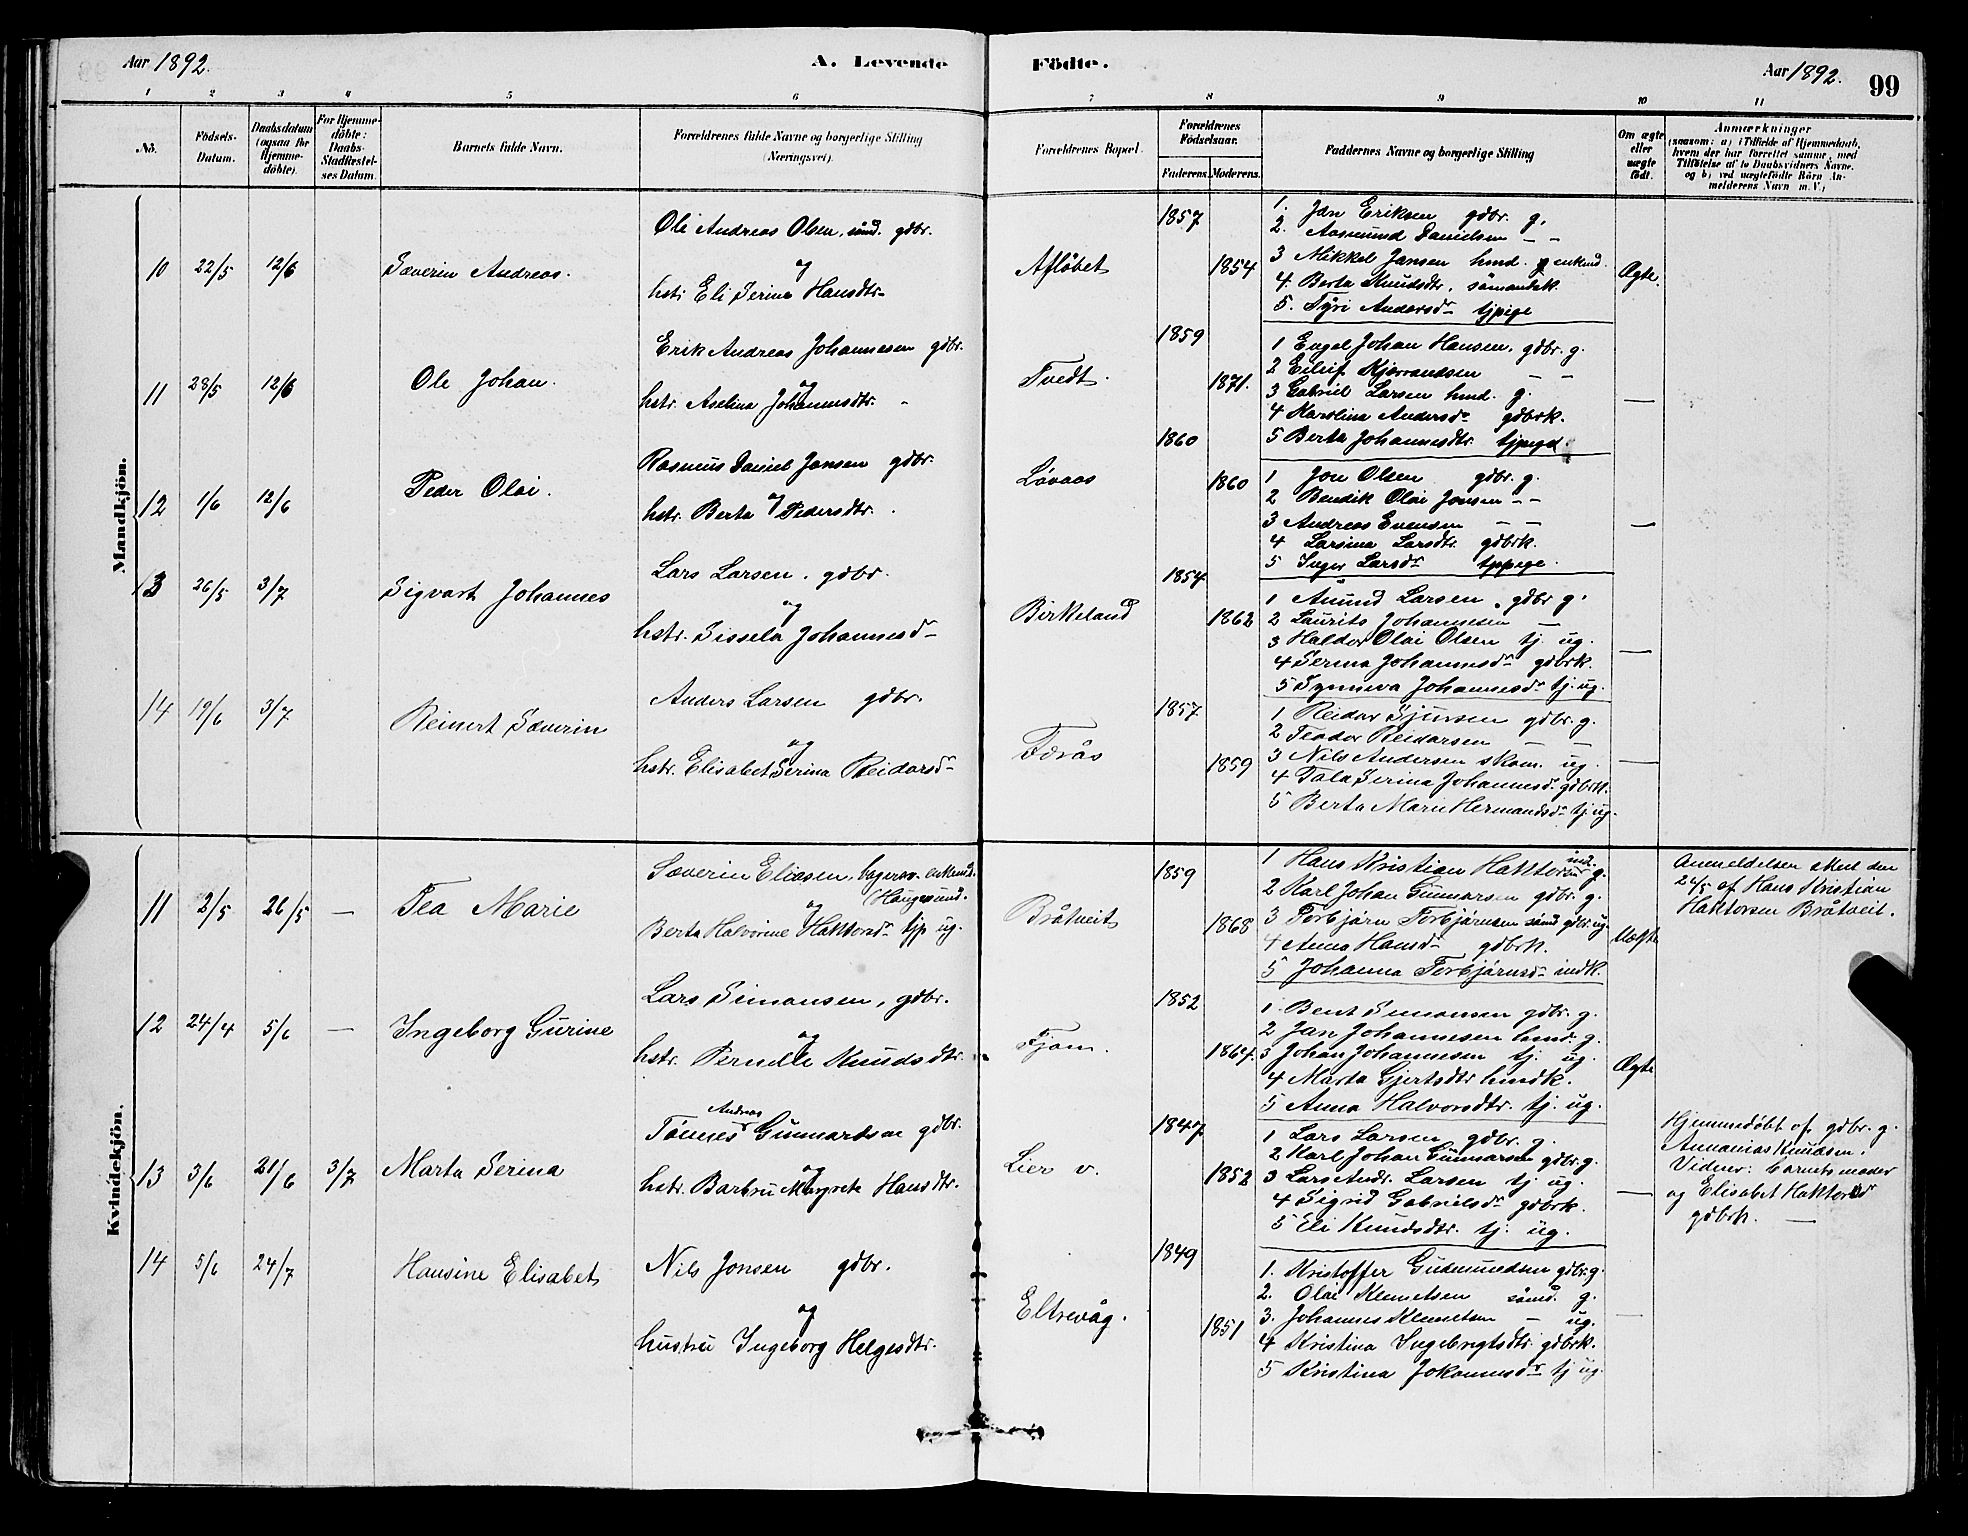 Aar 1892.
A. Levende
Födte.
Aar 1892.
99
1 2 3 4 5 6 7 8 9 10 11
No.
Födsels-
Datum.
Daabsdatum
(ogsaa for
Hjemme-
döbte).
For Hjemme-
döbte:
Daabs-
Stadfæstel-
ses Datum.
Barnets fulde Navn.
Forældrenes fulde Navne og borgerlige Stilling
(Næringsvei).
Forældrenes Bopæl.
Forældrenes
Födselsaar.
Faderens. Moderens.
Faddernes Navne og borgerlige Stilling
Om ægte
eller
uægte
födt.
Anmærkninger
(saasom: a) i Tilfælde af Hjemmedaab,
hvem der har forrettet samme, med
Tilföielse af to Daabsvidners Navne.
og b) ved uægtefödte Börn An-
melderens Navn m. V.)
Mandkjön.
10 22/5 12/6 Sæverin Andreas.
Ole Andreas Olsen, sömd. gdbr.
og
hstr. Eli Serina Hansdtr.
Aflöbet
1857
1854
1. Jan Eriksen gdbr. g.
2. Aasmund Danielsen — —
3 Mikkel Jansen hmd. enkmd.
4. Berta Knudsdtr, sömandsk.
5. Tyri Andersdr tjpige
Ægte.
11 28/5 12/6 Ole Johan.
Erik Andreas Johannesen gdbr.
og
hstr. Aselina Johannesdtr.
Tvedt.
1859
1871.
1 Engel Johan Hansen, gdbr. g.
2 Eilif Kjerrandsen — —
3 Gabriel Larsen hmd. g.
4 Karolina Andersdr gdbrk.
5 Berta Johannesdtr. tjpige
—
12 1/6 12/6 Peder Olai.
Rasmus Daniel Jansen gdbr.
og
hstr. Berta Pedersdtr.
Lövaas
1860
1860
1 Jon Olsen gdbr. g.
2 Bendik Olai Jonsen — —
3 Andreas Evensen — —
4 Larsina Larsdtr. gdbrk.
5 Inger Larsdr tjpige.
—
13 26/5 3/7 Sigvart Johannes
Lars Larsen. gdbr.
og
hstr. Sissela Johannesdr
Birkeland
1854
1862
1 Amund Larsen, gdbr g.
2 Laurits Johannesen —
3 Haldor Olai Olsen tj. ug.
4 Serina Johannesdr gdbrk.
5 Synneva Johannesdr tj. ug.
—
14 19/6 3/7 Reinert Sæverin
Anders Larsen gdbr.
og
hstr. Elisabet Serina Reidarsdr
Förås
1857
1859
1 Reidar Sjursen gdbr. g.
2 Teodor Reidarsen — —
3 Nils Andersen skom. ug.
4 Tala Serina Johannesdr gdbrk.
5 Berta Marie Hermandsdr tj. ug.
—
Kvindekjön.
11 2/5 26/5 — Tea Marie
Sæverin Eliasen, bagersv. enkmd.
og (Haugesund.
Berta Halvorine Haktorsdr tjp ug.
Bråtveit
1859
1868
1 Hans Kristian Haktorsen ind. g.
2 Karl Johan Gunnarsen gdbr. g.
3 Torbjörn Torbjörnsen sömd gdbr. ug.
4 Anna Hansdr gdbrk.
5 Johanna Torbjörnsdr indk.
Uægte
Anmeldelsen skeet den
24/5 af Hans Kristian
Haktorsen Bråtveit.
12 24/4 5/6 — Ingeborg Gurine
Lars Simonsen, gdbr.
og
hstr. Pernille Knudsdtr.
Fjon.
1852
1864.
1. Bent Simonsen gdbr. g.
2 Jan Johannesen hmd. g.
3 Johan Johannesen tj. ug.
4 Marta Gjertsdtr hmdk.
5 Anna Halvorsdtr. tj. ug.
Ægte
13 3/6 21/6 3/7 Marta Serina
Andreas
Tönnes Gunnarsen gdbr.
og
hstr. Barbru Margrete Hansdtr.
Lier v.
1847.
1852
1 Lars Larsen gdbr. g.
2 Karl Johan Gunnarsen gdbr. g.
3 Lars Andr. Larsen tj. ug.
4 Sigrid Gabrielsdr gdbrk.
5 Eli Knudsdtr. tj. ug.
—
Hjemmedöbt af gdbr. g.
Annanias Knudsen.
Vidner: barnets moder
og Elisabet Haktorsd
gdbrk. —
14 5/6 24/7 Hansine Elisabet
Nils Jonsen gdbr.
og
hustru Ingeborg Helgesdtr.
Eltrevåg.
1849
1851
1. Kristoffer Gudmundsen gdbr. g.
2. Olai Klemetsen sömd. g.
3. Johannes Klemetsen — ug.
4 Kristina Ingebregtsdtr. gdbrk.
5 Kristina Johannesdr tj ug.
—